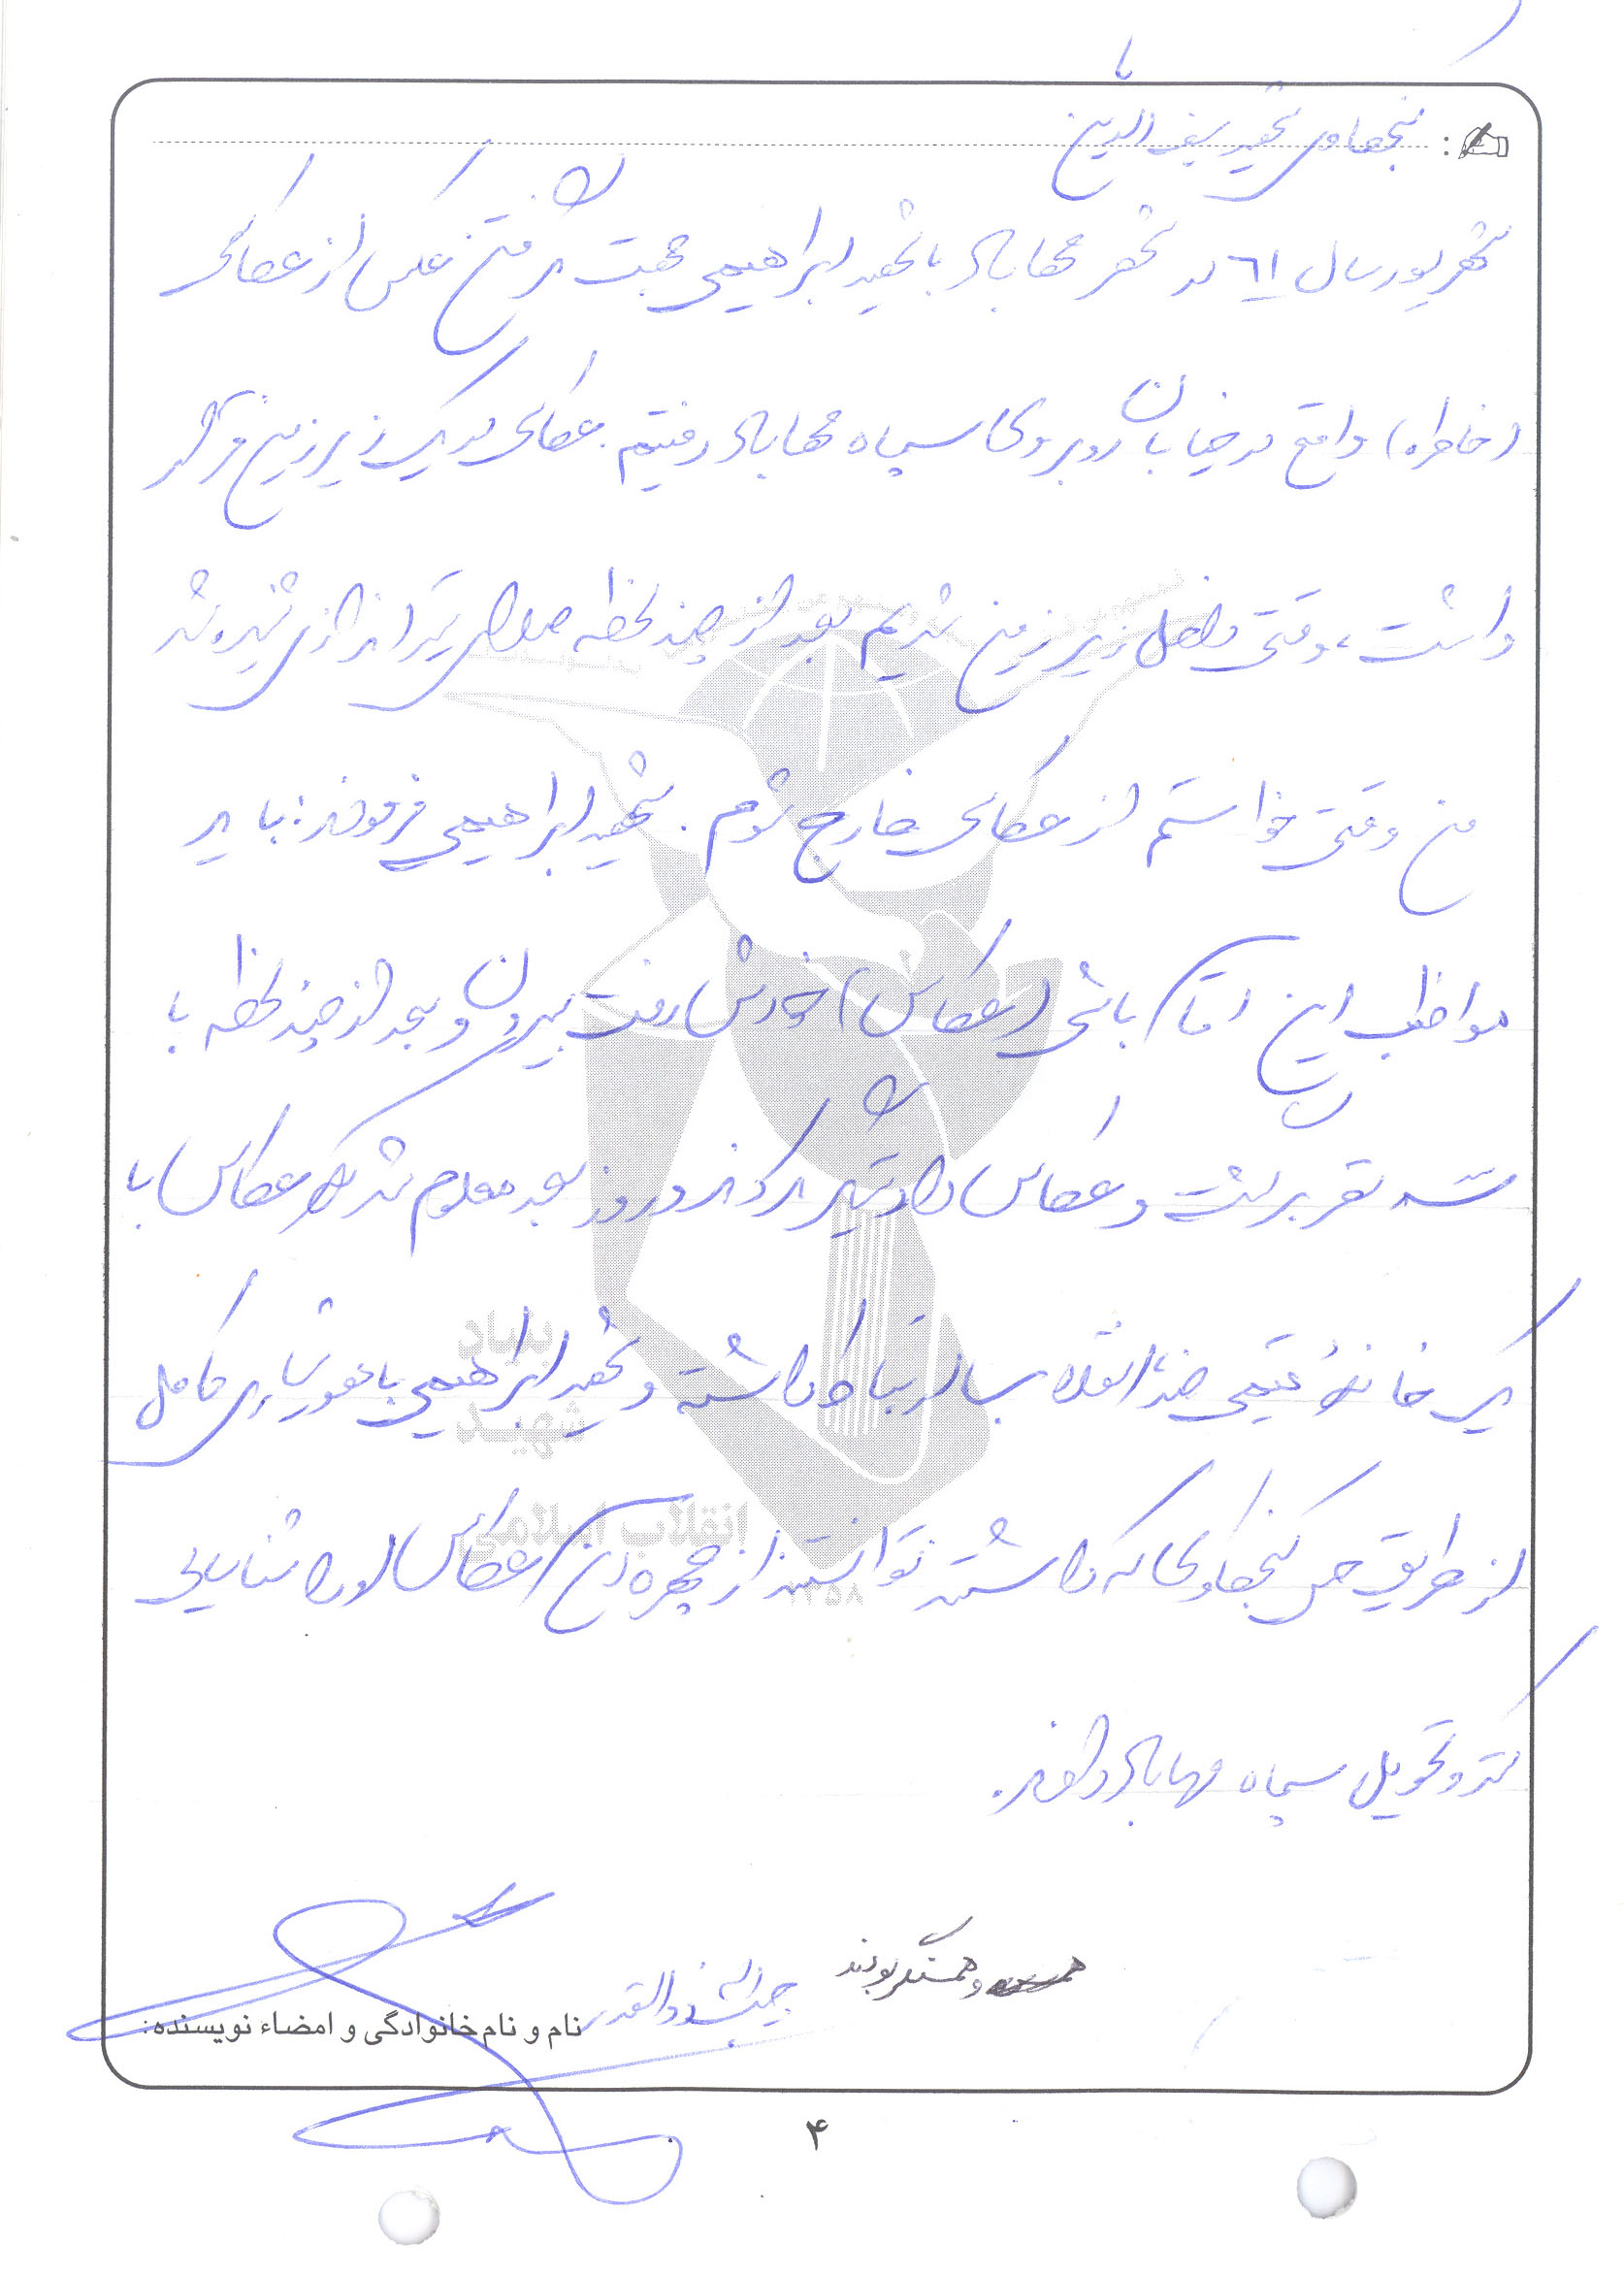 کنجکاوی شهید سیف الدین
شهریور سال ٦١ در شهر مهاباد با شهید ابراهیمی جهت گرفتن عکس از عکاسی
(خاطره) واقع در خیابان روبروی سپاه مهاباد رفتیم. عکاسی در یک زیرزمین قرار
داشت، وقتی داخل زیرزمین شدیم بعد از چند لحظه صدای تیراندازی شنیده شد
من وقتی خواستم از عکاسی خارج شوم. شهید ابراهیمی فرمودند: باید
مواظب این آقا باشی (عکاس) خودش رفت بیرون و بعد از چند لحظه با
سه نفر برگشت و عکاس را دستگیر کردند و روز بعد معلوم شد که عکاس با
یک خانه تیمی ضد انقلاب ارتباط داشته و شهید ابراهیمی با هوشیاری کامل
از طریق حس کنجکاوی که داشتند توانستند از چهره این عکاس او را شناسایی
کند و تحویل سپاه مهاباد دادند.
و همسنگر بودند
ذوالقدر
نام و نام‌خانوادگی و امضاء نویسنده:
۴
بنیاد
شهید
انقلاب اسلامی
۱۳۵۸